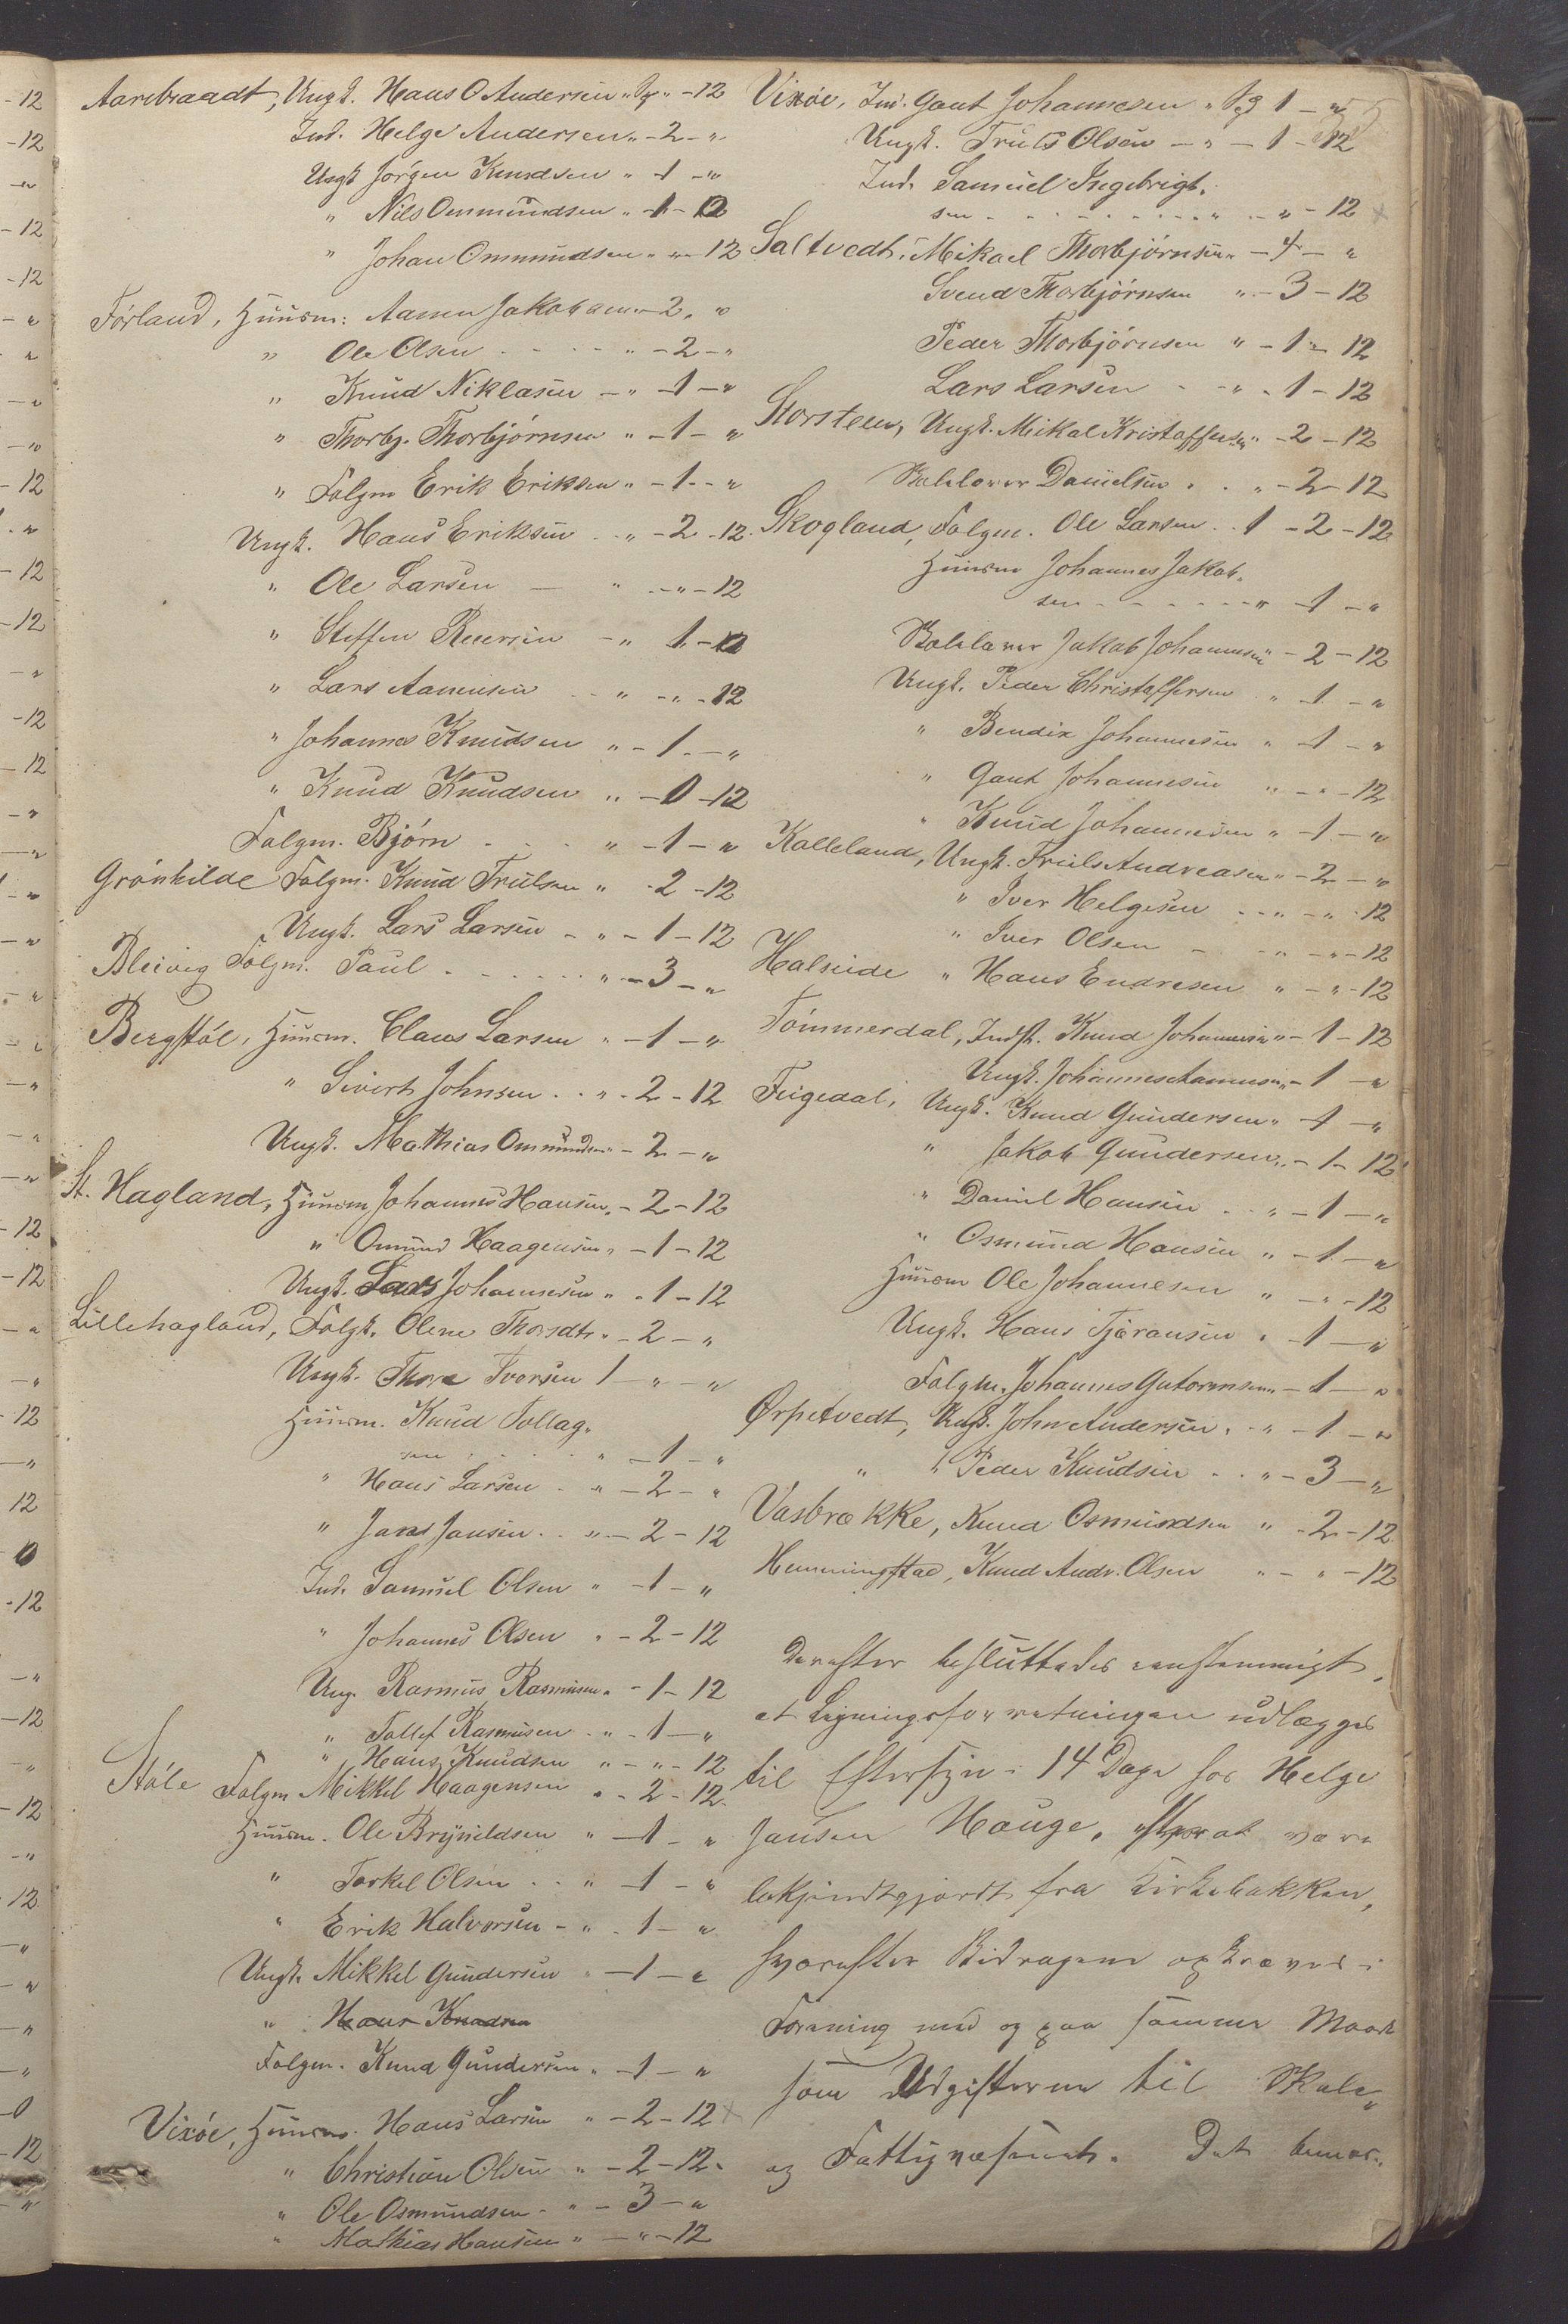 Aarebraadt, Ungk. Hans O Andersen " " -12
Ind. Helge Andersen " -2- "
Ungk Jørgen Knudsen " -1- "
" Nils Ommundsen " -1-12
" Johan Ommundsen " " 12
Førland, Huusm: Aamen Jakobsen -2. "
" Ole Olsen - - - " -2- "
" Knud Niklasen - " -1- "
" Thorbj. Thorbjørnsen " -1- "
" Folgm Erik Eriksen " -1- "
Ungk. Hans Eriksen .. " -2-12.
" Ole Larsen — " -"-12
" Steffen Reiersen - " 1-12
" Lars Aamensen .. " -"-12
" Johannes Knudsen " -1- "
" Knud Knudsen " -0-12
Folgm. Bjørn . . . . " -1- "
Grønhilde Folgm. Knud Trulsen " -2-12
Ungk. Lars Larsen - " -1-12
Bleivig Folgm. Paul . . . . . " -3- "
Bergstøl, Huusm. Claus Larsen " -1- "
" Sivert Johnsen . . " -2-12
Ungk. Mathias Ommundsen " -2- "
St. Hagland, Huusm Johannes Hansen " -2-12
" Omund Haagensen " -1-12
Ungk. Lars Johannesen " -1-12
Lillehagland, Folgk. Olene Thorsdtr " -2- "
Ungk. Thore Iversen 1 - " - "
Huusm. Knud Tollag-
sen . . . . . " -1- "
" Hans Larsen . " -2- "
" Jans Jansen . . " -2-12
Ind. Samuel Olsen " -1- "
" Johannes Olsen " -2-12
Ung. Rasmus Rasmusen " -1-12
" Tollef Rasmusen . " -1- "
" Hans Knudsen " - " -12
Støle Folgm Mikkel Haagensen " -2-12.
Huusm. Ole Brynildsen " -1- "
" Torkel Olsen . . " -1- "
" Erik Halvorsen - " -1- "
Ungk. Mikkel Gundersen " -1- "
" Hans Knudsen
Folgm. Knud Gundersen " -1- "
Vixøe, Huusm. Hans Larsen " -2-12
" Christian Olsen " -2-12.
" Ole Osmundsen - " -3- "
" Mathias Hansen " - " -12
Vixøe, Ind. Gaut Johannesen " 1 - "
Ungk. Truls Olsen - " -1-12
Ind. Samuel Ingebrigt-
sen - - - - - - " - " -12
Saltvedt, Mikael Thorbjørnsen " -4- "
Svend Thorbjørnsen " -3-12
Peder Thorbjørnsen " -1-12
Lars Larsen - " -1-12
Storsteen, Ungk. Mikal Kristoffersen " -2-12
Danielsen . . " -2-12
Skogland, Folgm. Ole Larsen . . 1 -2-12
Huusm Johannes Jakob-
sen - - - - - - " -1- "
Jakob Johannesen " -2-12
Ungk. Peder Christoffersen " -1- "
" Bendix Johannesen " -1- "
" Gaut Johannesen " - " -12
" Knud Johannesen " -1- "
Kalleland, Ungk. Truls Andreasen " -2- "
" Iver Helgesen . . " - " -12
" Iver Olsen - " - " -12
Halseide " Hans Endresen " - " -12
Tømmerdal, Indst. Knud Johannesen " -1-12
Ungk. Johannes Aamensen " -1- "
Feigedal, Ungk. Knud Gundersen " -1- "
" Jakob Gundersen " -1-12
" Daniel Hansen . . " -1- "
" Osmund Hansen " -1- "
Huusm Ole Johannesen " - " -12
Ungk. Hans Tjøransen " -1- "
Folgm. Johannes Gutormsen " -1- "
Ørpetvedt, Ungk. John Andersen . " -1- "
" " Peder Knudsen . . " -3- "
Vasbrække, Knud Osmundsen " -2-12
Hemmingstad, Knud Andr. Olsen " - " -12
Derefter besluttedes eenstemmigt,
at Ligningsforretningen udlægges
til Eftersyn i 14 Dage hos Helge
Jansen Hauge, efterat være
bekjendtgjordt fra Kirkebakken,
hvorefter Bidragene opkræves i
Forening med og paa samme Maade
som Udgifterne til Skole-
og Fattigvæsenet. Det bemær-